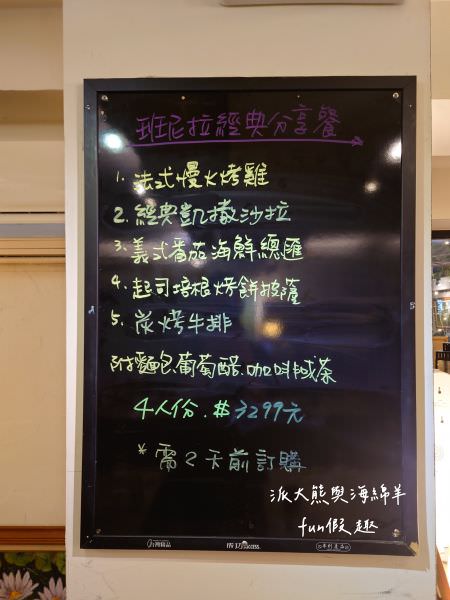 班尼拉經典分享餐
1. 法式慢火烤雞
2. 經典凱撒沙拉
3. 義式番茄海鮮總匯
4. 起司培根烤餅披薩
5. 炭烤牛排
附麵包.葡萄醋.咖啡或茶
4人份.$3299元
*需2天前訂購
派大熊與海綿羊
fun假趣